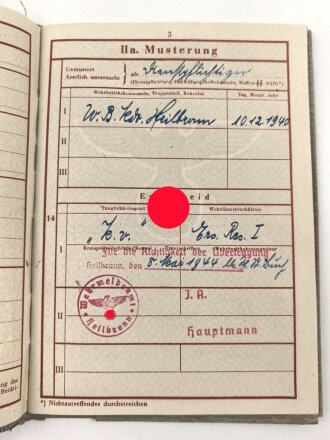 5
IIa. Musterung
Gemustert
Ärztlich untersucht
als Dienstpflichtiger
Wehrbezirkskommando, Truppenteil, Konsulat Tag, Monat, Jahr
I W. B. Kdo. Heilbronn 10.12.1940
II
III
Tauglichkeitsgrad Wehrdienstverhältnis
14
I "k. v." Ers. Res. I
Für die Richtigkeit der Übertragung
Heilbronn, den 8. Mai 1944
Wehrmeldeamt
Heilbronn
II
I.A.
Hauptmann
III
*) Nichtzutreffendes durchstreichen